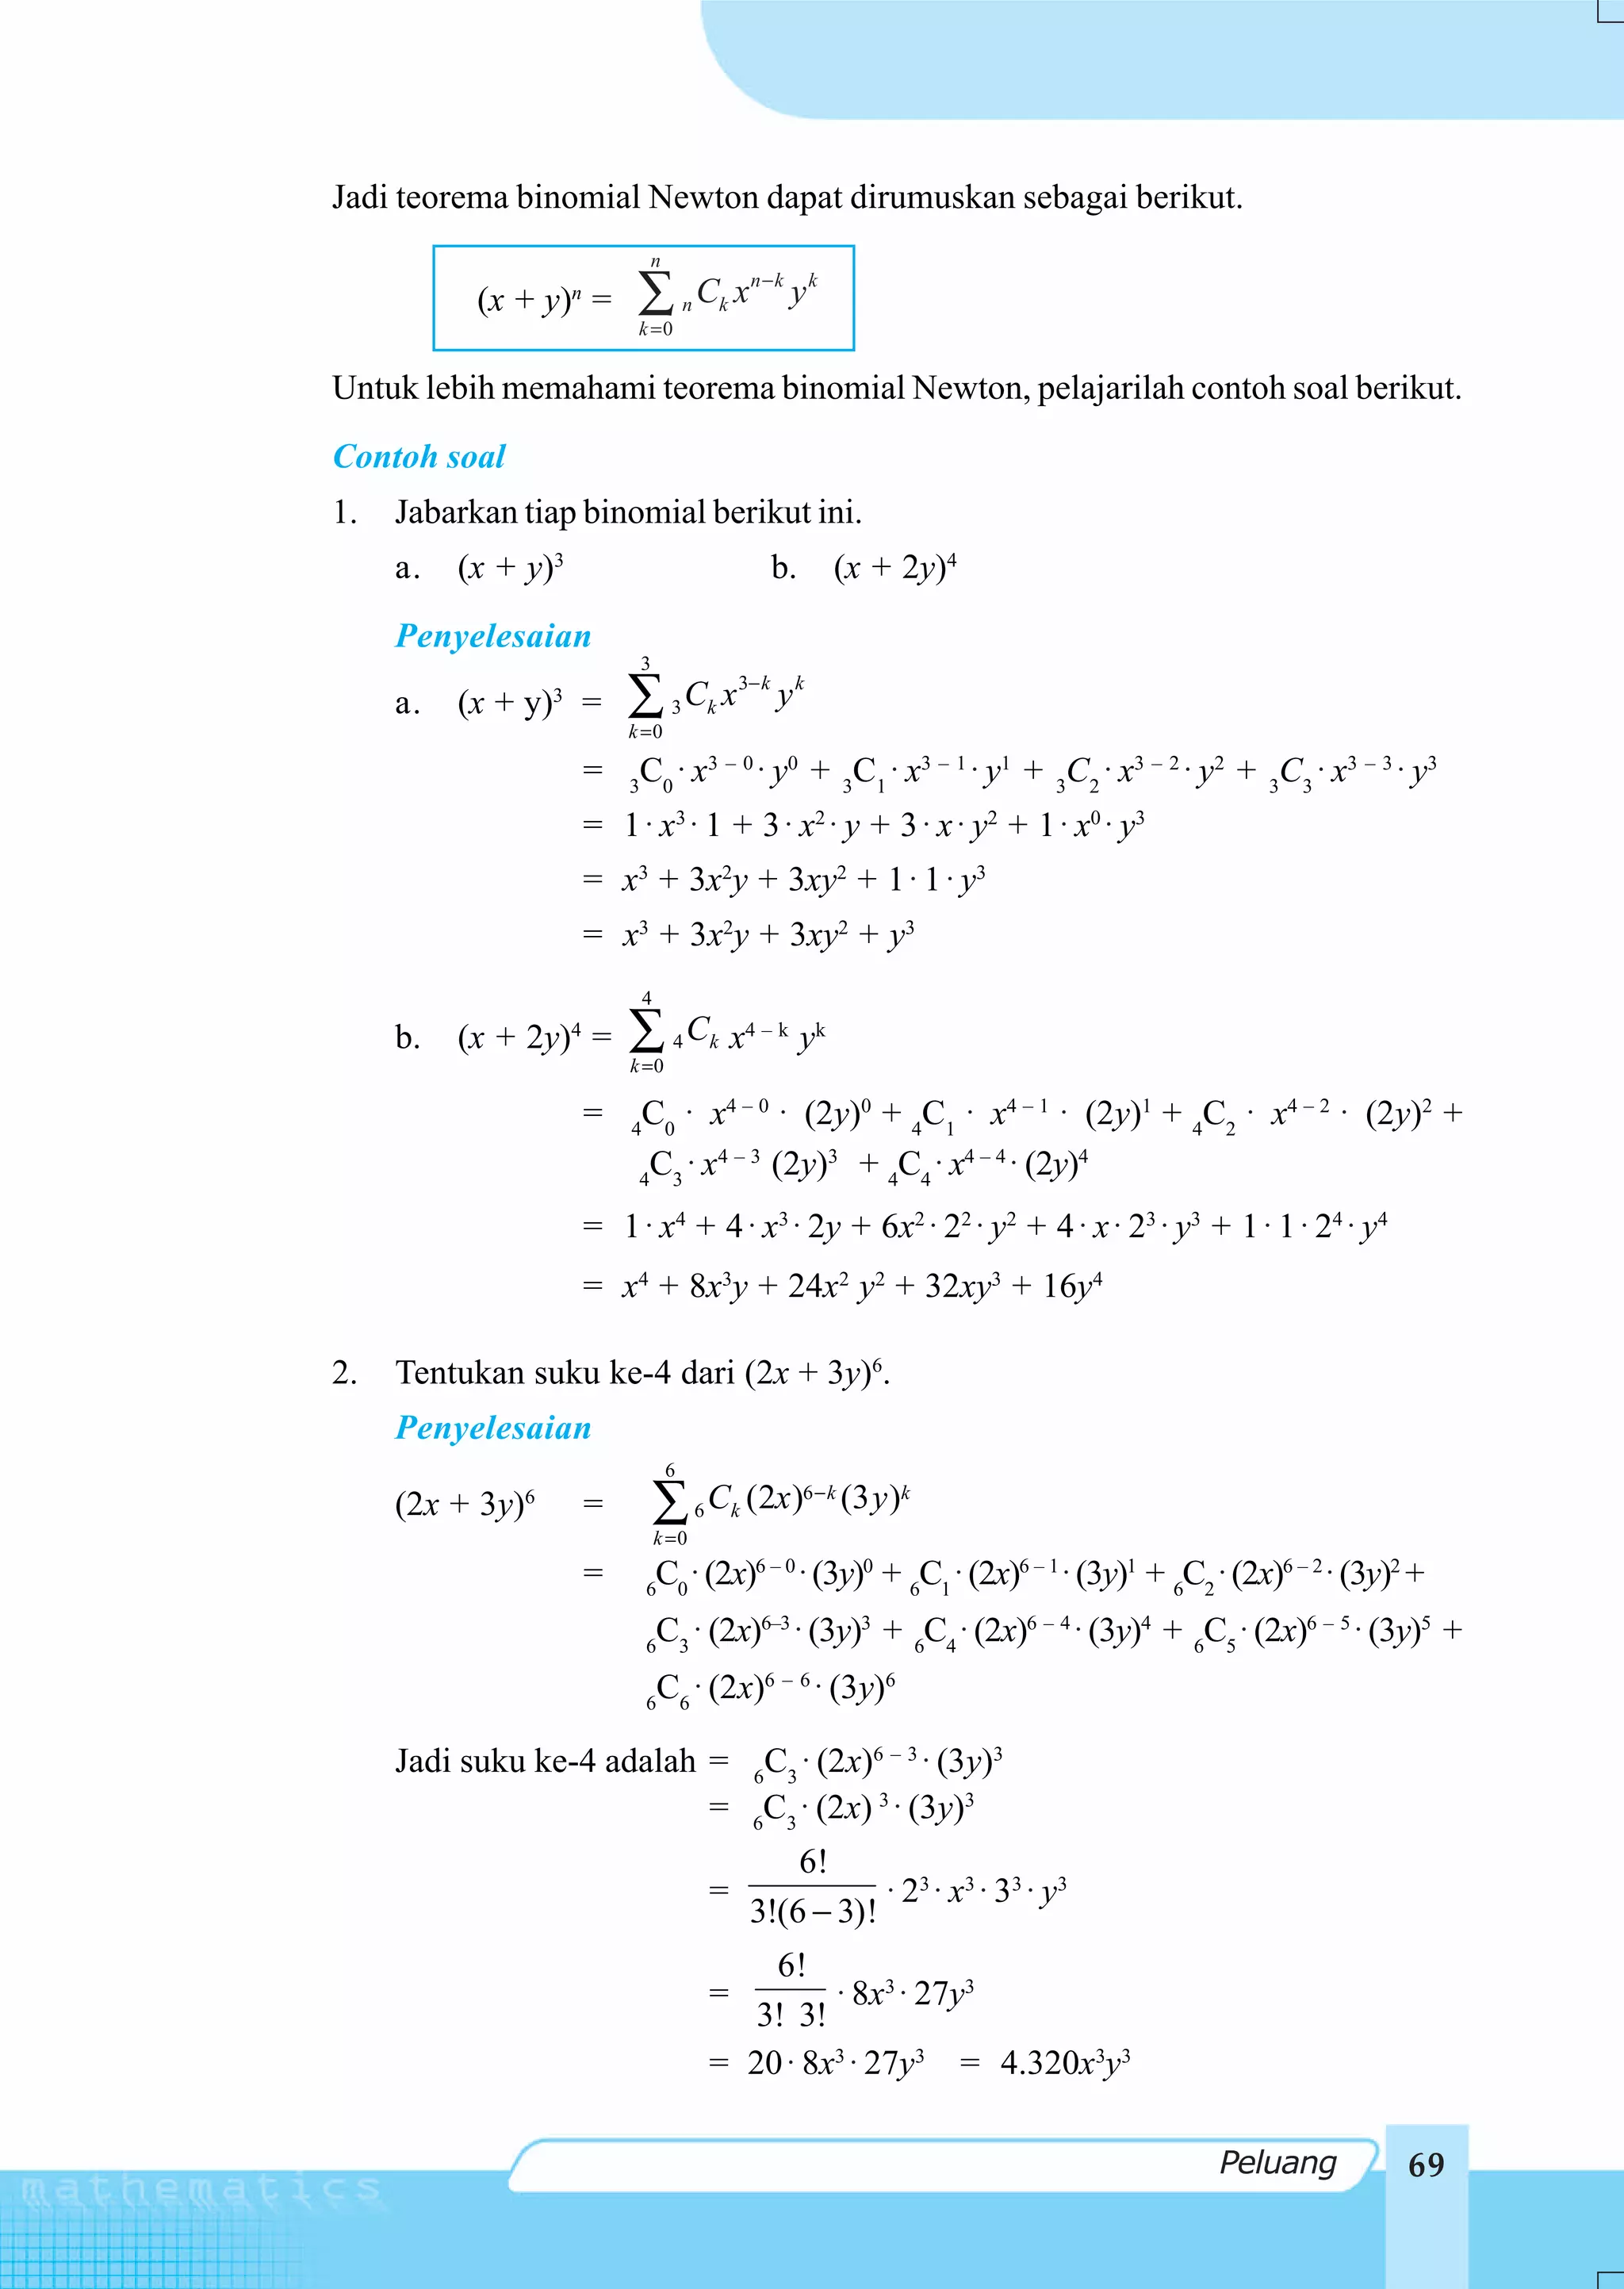 Jadi teorema binomial Newton dapat dirumuskan sebagai berikut.
(x + y)ⁿ = \sum_{k=0}^{n} {}_{n}C_{k} x^{n−k} y^{k}
Untuk lebih memahami teorema binomial Newton, pelajarilah contoh soal berikut.
Contoh soal
1. Jabarkan tiap binomial berikut ini.
a. (x + y)³ b. (x + 2y)⁴
Penyelesaian
a. (x + y)³ = \sum_{k=0}^{3} {}_{3}C_{k} x^{3−k} y^{k}
= ₃C₀ · x^{3 – 0} · y⁰ + ₃C₁ · x^{3 – 1} · y¹ + ₃C₂ · x^{3 – 2} · y² + ₃C₃ · x^{3 – 3} · y³
= 1 · x³ · 1 + 3 · x² · y + 3 · x · y² + 1 · x⁰ · y³
= x³ + 3x²y + 3xy² + 1 · 1 · y³
= x³ + 3x²y + 3xy² + y³
b. (x + 2y)⁴ = \sum_{k=0}^{4} {}_{4}C_{k} x^{4 – k} y^{k}
= ₄C₀ · x^{4 – 0} · (2y)⁰ + ₄C₁ · x^{4 – 1} · (2y)¹ + ₄C₂ · x^{4 – 2} · (2y)² +
₄C₃ · x^{4 – 3} (2y)³ + ₄C₄ · x^{4 – 4} · (2y)⁴
= 1 · x⁴ + 4 · x³ · 2y + 6x² · 2² · y² + 4 · x · 2³ · y³ + 1 · 1 · 2⁴ · y⁴
= x⁴ + 8x³y + 24x² y² + 32xy³ + 16y⁴
2. Tentukan suku ke-4 dari (2x + 3y)⁶.
Penyelesaian
(2x + 3y)⁶ = \sum_{k=0}^{6} {}_{6}C_{k} (2x)^{6−k} (3y)^{k}
= ₆C₀ · (2x)^{6 – 0} · (3y)⁰ + ₆C₁ · (2x)^{6 – 1} · (3y)¹ + ₆C₂ · (2x)^{6 – 2} · (3y)² +
₆C₃ · (2x)^{6–3} · (3y)³ + ₆C₄ · (2x)^{6 – 4} · (3y)⁴ + ₆C₅ · (2x)^{6 – 5} · (3y)⁵ +
₆C₆ · (2x)^{6 – 6} · (3y)⁶
Jadi suku ke-4 adalah = ₆C₃ · (2x)^{6 – 3} · (3y)³
= ₆C₃ · (2x) ³ · (3y)³
= \frac{6!}{3!(6 − 3)!} · 2³ · x³ · 3³ · y³
= \frac{6!}{3! 3!} · 8x³ · 27y³
= 20 · 8x³ · 27y³ = 4.320x³y³
Peluang 69
mathematics